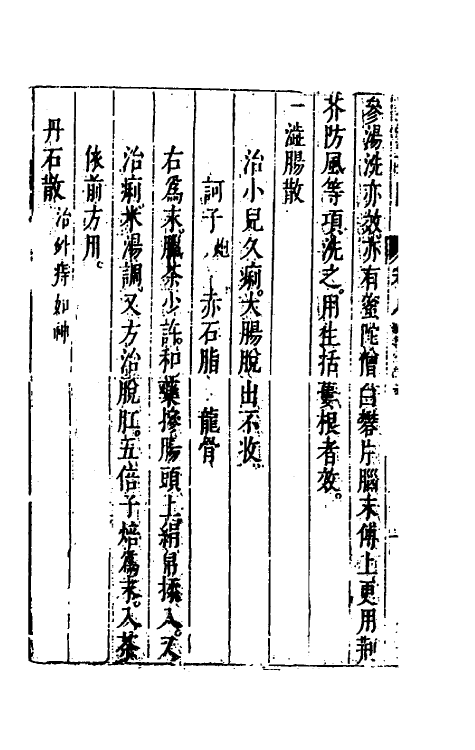 參湯洗亦效亦有蜜陀僧白礬片腦末傅上更用荊
芥防風等項洗之。用生括蔞根者效。
一澁腸散
治小兒久痢。大腸脫出不收。
訶子炮 赤石脂 龍骨
右為末。臘茶少許。和藥摻腸頭上。絹帛揉入。又
治痢。米湯調。又方治脫肛。五倍子焙為末。入茶
依前方用。
丹石散 治外痔如神